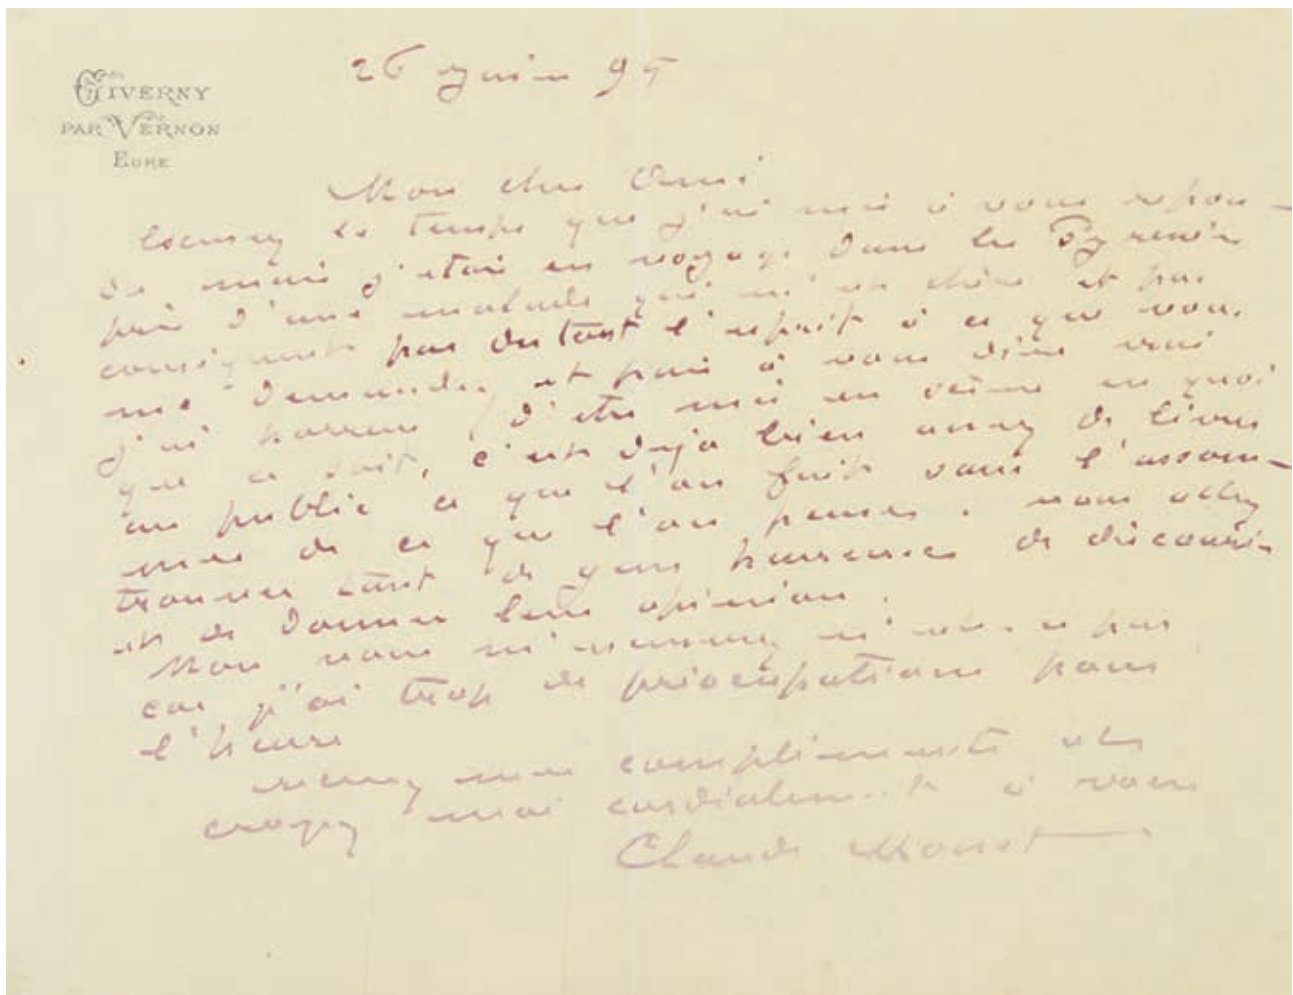 GIVERNY
PAR VERNON
EURE
26 juin 95
Mon cher Ami
Excusez le temps que j'ai mis à vous repon-
dre mais j'étais en voyage dans les Pyrenées
près d'une malade qui m'est chère et par
conséquent pas du tout l'esprit à ce que vous
me demandez, et puis à vous dire vrai
j'ai horreur d'etre mis en scène en quoi
que ce soit, c'est deja bien assez de livrer
au public ce que l'on fait sans l'assom-
mer de ce que l'on pense. vous allez
trouver tant de gens heureux de discourir
et de donner leur opinion.
car j'ai trop de préocupations pour
l'heure
recevez mes compliments et
croyez moi cordialement à vous
Claude Monet